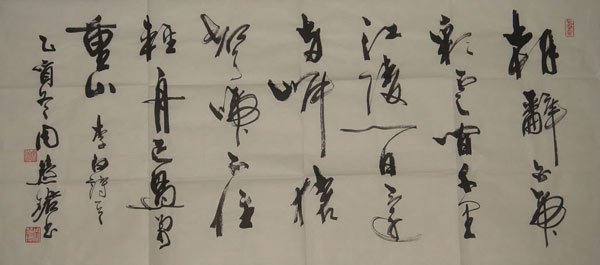 朝辭白帝
彩雲間千里
江陵一日還
兩岸猿
聲啼不住
輕舟已過萬
重山 李白詩
冬周 書